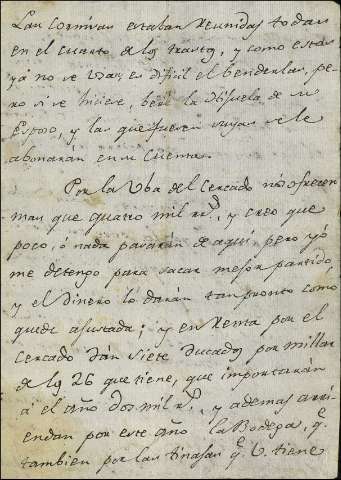 Las Cortinas estaban reunidas todas
en el cuarto de los trastos, y como estas
ya no se usan es dificil el benderlas, pe-
ro si se hiciese, beré la Hijuela de su
Esposo, y las que fueren suyas se le
abonarán en su Cuenta.
Por la Uba del Cercado nos ofrecen
mas que quatro mil rs. y creo que
poco, ó nada pasarán de aqui, pero yó
me detengo para sacar mejor partido
y el Dinero lo darán tan pronto como
quede ajustada; y en Renta por el
Cercado dán siete Ducados por millar
de los 26 que tiene, que importarán
á el año dos mil rs. y ademas arri-
endan por este año la Bodega, q.e
tambien por las tinajas q.e V. tiene